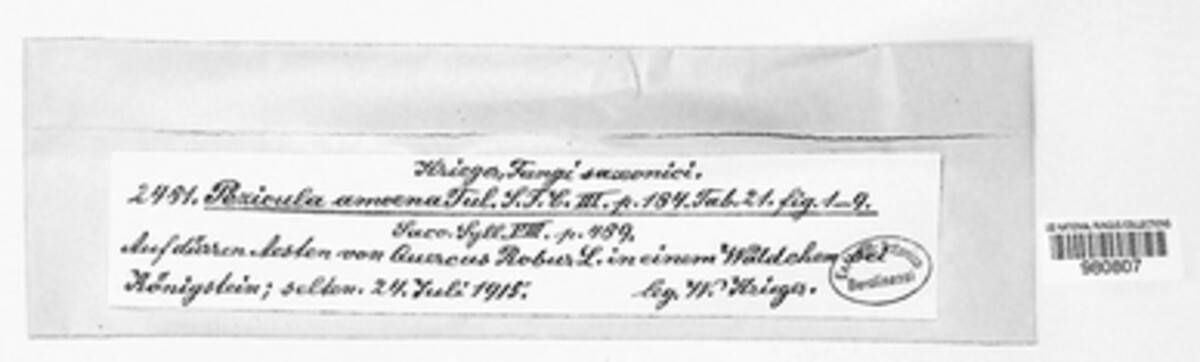 Krieger, Fungi saxonici.
2481. Pezicula amoena Tul. S.F.C. III. p. 184. Tab. 21. fig. 1-9.
Sacc. Syll. VIII. p. 489.
Auf dürren Aesten von Quercus Robur L. in einem Wäldchen bei
Königstein; selten. 24. Juli 1915. leg. W. Krieger.
US NATIONAL FUNGUS COLLECTIONS
980807